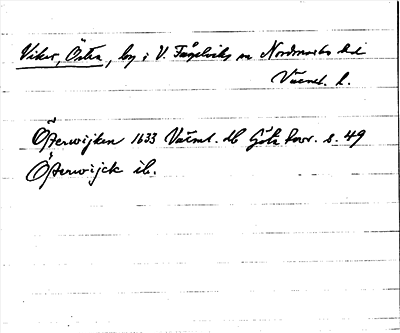 Viker, Östra, by i V. Fågelviks sn Nordmarks hd
Värml. l.
Österwijken 1633 Värml. db Göta hovr. s. 49
Österwijck ib.